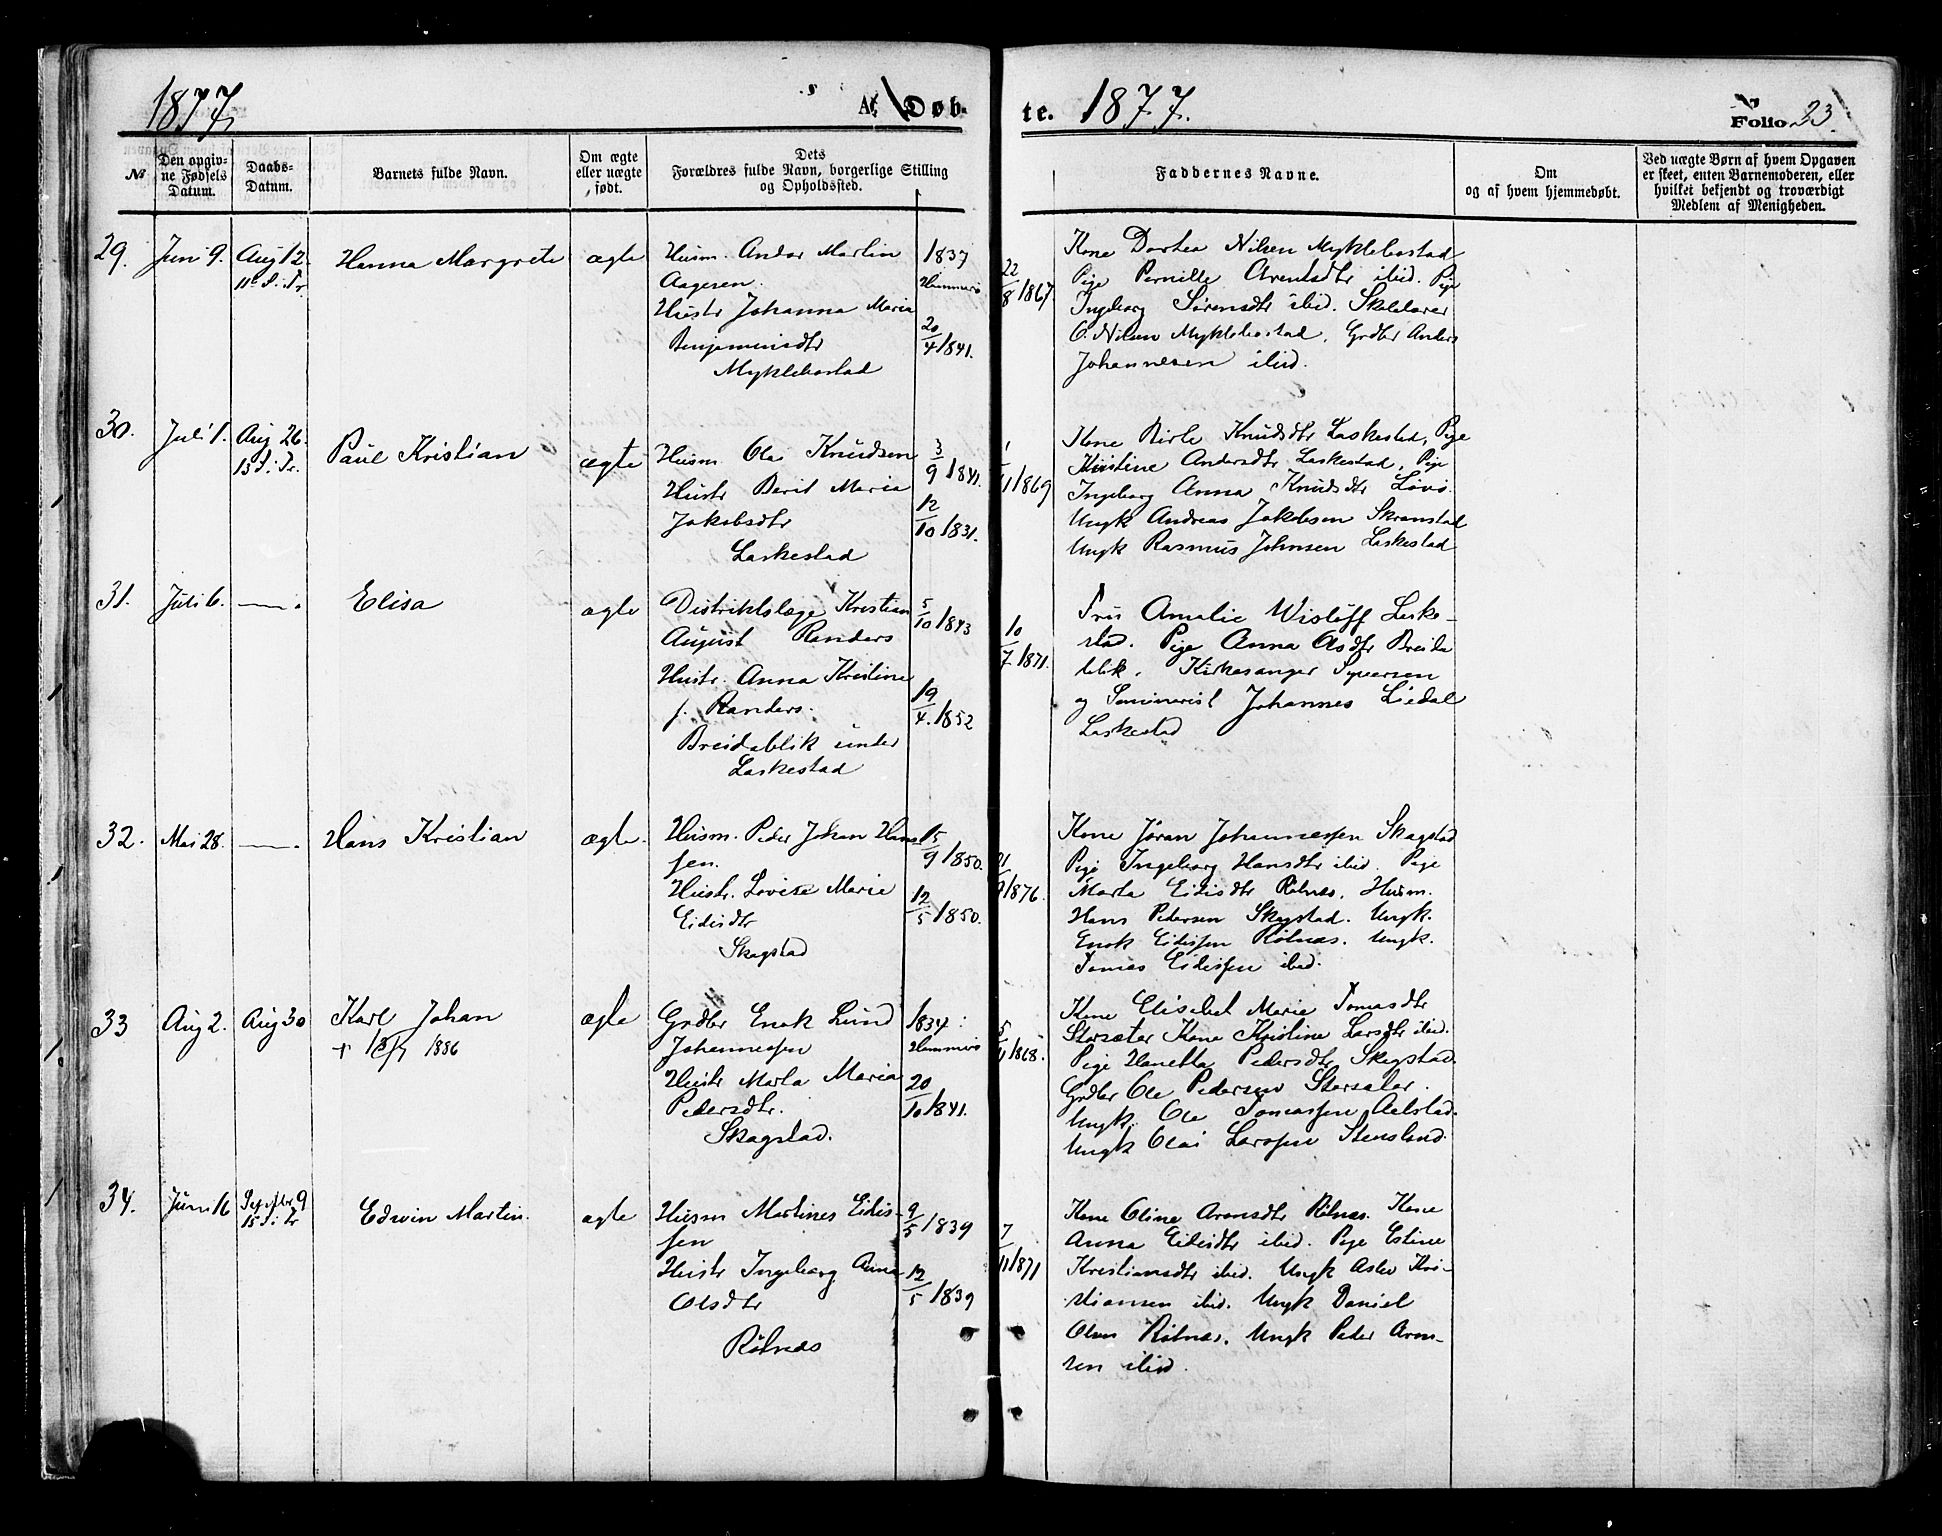 1877
A. Døb-
te. 1877.
Folio 23.
№
Den opgiv-
ne Fødsels
Datum.
Daabs-
Datum.
Barnets fulde Navn.
Om ægte
eller uægte
født.
Dets
Forældres fulde Navn, borgerlige Stilling
og Opholdssted.
Faddernes Navne.
Om
og af hvem hjemmedøbt.
Ved uægte Børn af hvem Opgaven
er skeet, enten Barnemoderen, eller
hvilket bekjendt og troværdigt
Medlem af Menigheden.
29. Juni 9. Aug 12
11te S. i Tr.
Hanna Margrete
ægte
Husm. Andor Martin
Aagesen.
Hustr Johanna Maria
Benjaminsdtr
Myklebostad
1837
Hammerø
20/4 1841.
22/8 1867.
Kone Dortea Nilsen Myklebostad
Pige Pernille Arentsdtr ibid. Pige
Ingeborg Sørensdtr ibid. Skolelærer
O. Nilsen Myklebostad, Grdbr Anders
Johannesen ibid.
30. Juli 1. Aug 26.
13 S. i Tr.
Paul Kristian
ægte
Husm Ole Knudsen
Hustr Berit Maria
Jakobsdtr
Laskestad
3/9 1841.
12/10 1831.
1/11 1869
Kone Birte Knudsdtr Laskestad, Pige
Kristine Andersdtr Laskestad, Pige
Ingeborg Anna Knudsdtr Løvø.
Ungk Andreas Jakobsen Skranstad
Ungk Rasmus Johnsen Laskestad
31. Juli 6. —.
Elisa
ægte
Distriktslæge Kristian
August Randers
Hustr. Anna Kristine
f. Randers.
Breidablik under
Laskestad
5/10 1843
19/4. 1852
10/7 1871.
Fru Amalie Wisløff Laske-
stad. Pige Anna Asdtr Breida
blik. Kirkesanger Syversen
og Seminarist Johannes Liedal
Laskestad
32. Mai 28. —.
Hans Kristian
ægte.
Husm. Peder Johan Han-
sen.
Hustr. Lovise Marie
Eidisdtr
Skagstad
15/9 1850.
12/5 1850.
21/9 1876.
Kone Jøran Johannessen Skagstad
Pige Ingeborg Hansdtr ibid. Pige
Marta Eidisdtr Rølnæs. Husm.
Hans Pedersen Skagstad. Ungk.
Enok Eidissen Rølnæs. Ungk.
Tomas Eidissen ibid.
33 Aug 2. Aug 30
Karl Johan
1886
ægte
Grdbr Enok Lund
Johannessen
Hustr Marta Maria
Pedersdtr.
Skagstad.
1834:
Hammerø
20/10 1841.
5/11 1868.
Kone Elisabet Marie Tomasdtr
Storsæter Kone Kristine Larsdtr ibid.
Pige Hanetta Pedersdtr Skagstad
Grdbr Ole Pedersen Storsæter.
Ungk. Ole Tomassen Aalstad.
Ungk Olai Larssen Stensland.
34. Juni 16 Septbr 9
15 S. i Tr
Edvin Martin.
ægte
Husm Martines Eidis-
sen
Hustr Ingeborg Anna
Olsdtr
Rølnæs
9/5 1839
12/5 1839
7/11 1871
Kone Oline Aronsdtr Rølnæs. Kone
Anna Eidisdtr ibid. Pige Estine
Kristiansdtr ibid. Ungk Aslev Kri-
stiansen ibid. Ungk Daniel
Olsen Rølnæs. Ungk Peder Aron-
sen ibid.